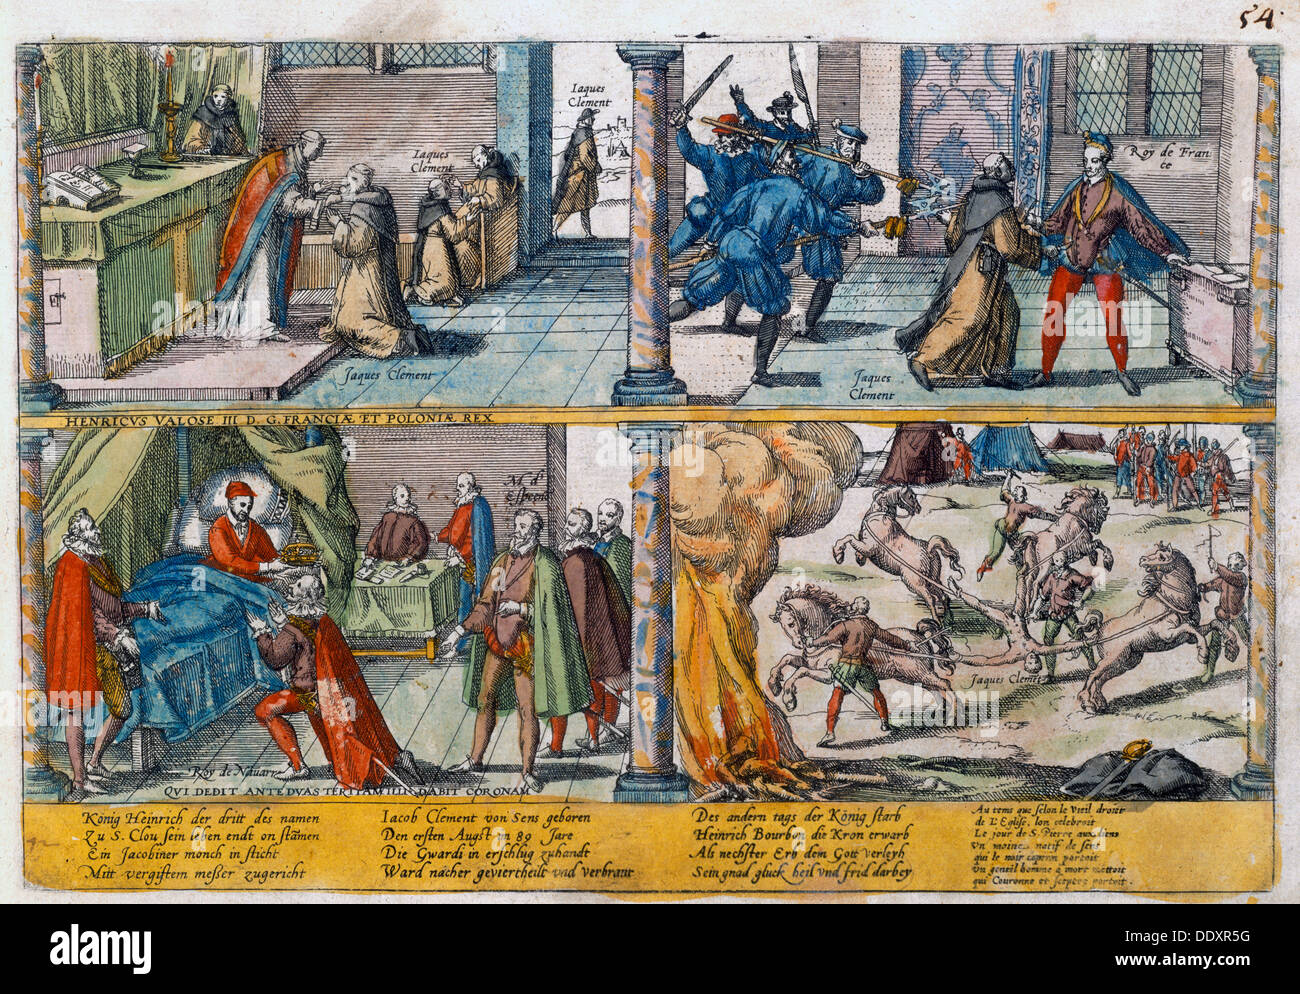 54.
Iaques
Clement
Iaques
Clement
Jaques Clement
Roy de Fran
ce
Jaques
Clement
HENRICVS VALOSE III D. G. FRANCIÆ ET POLONIÆ REX
M d'
Espernō
Roy de Navarr
QVI DEDIT ANTE DVAS TERTIAM ILLE DABIT CORONAM
Jaques Clemet
König Heinrich der dritt des namen
Zu S. Clou sein leben endt on stāmen
Ein Jacobiner monch in sticht
Mitt vergiftem meßer zugericht
Iacob Clement von Sens geboren
Den ersten Augst in 89 Jare
Die Gwardi in erschlug zuhandt
Ward nacher geviertheilt vnd verbrant
Des andern tags der König starb
Heinrich Bourbon die Kron erwarb
Als nechster Erb dem Gott verleyh
Sein gnad gluck heil vnd frid darbey
Au tems que selon le vieil droict
de L'Eglise, lon celebroit
Le jour de S. Pierre aux liens
Vn moine natif de sens
qui le noir caperon portoit
Vn gentil homme a mort mettoit
qui Couronne et sceptre portoit.
alamy
DDXR5G
www.alamy.com